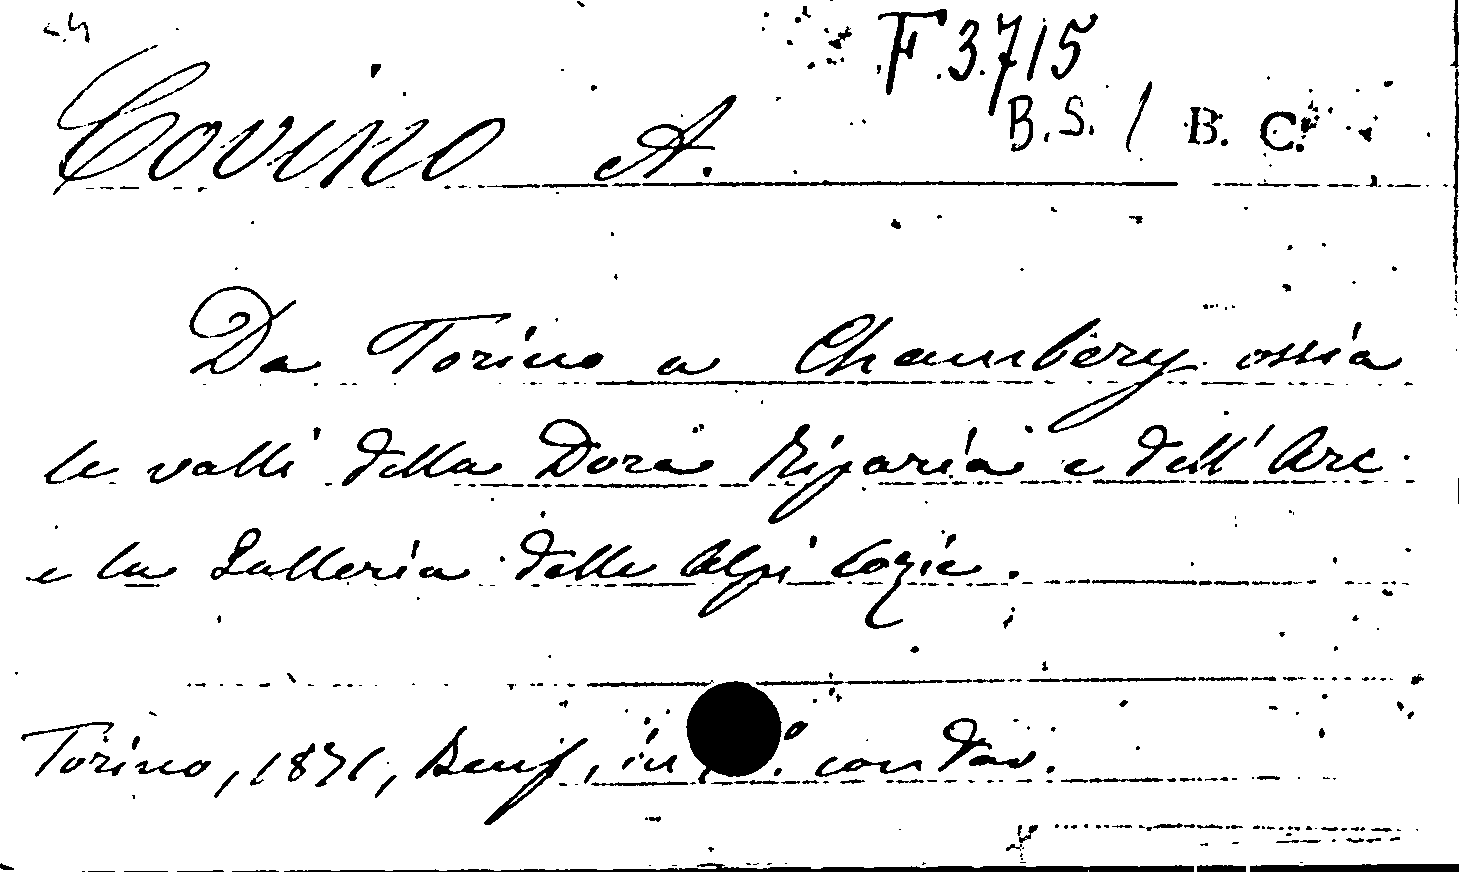 F.3.715
B.S. / B. C.
Covino A.
Da Torino a Chambery ossia
le valli della Dora Riparia e dell' Arc
e la Galleria delle Alpi Cozie.
Torino, 1871, Beuf, in con tav.